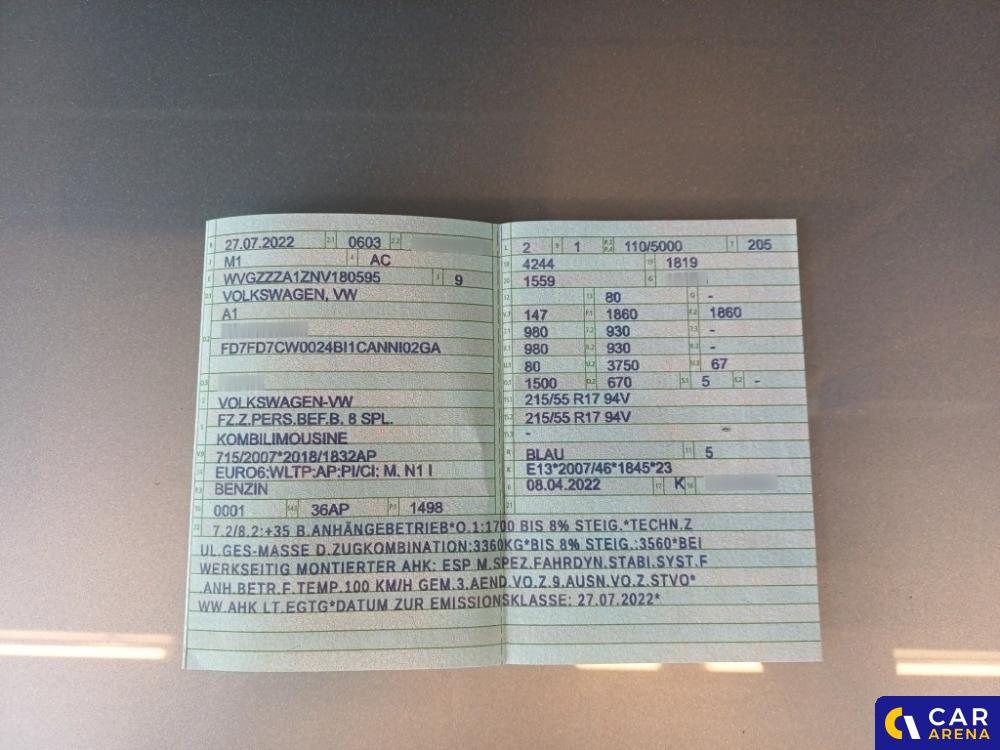 B 27.07.2022 2.1 0603 2.2
J M1 4 AC
E WVGZZZA1ZNV180595 3 9
D.1 VOLKSWAGEN, VW
A1
D.2
FD7FD7CW0024BI1CANNI02GA
D.3
2 VOLKSWAGEN-VW
5 FZ.Z.PERS.BEF.B. 8 SPL.
KOMBILIMOUSINE
V.9 715/2007*2018/1832AP
14 EURO6;WLTP;AP;PI/CI; M, N1 I
P.3 BENZIN
10 0001 14.1 36AP P.1 1498
L 2 9 1 P.2 P.4 110/5000 T 205
18 4244 19 1819
20 1559 G
12 13 80 Q -
V.7 147 F.1 1860 F.2 1860
7.1 980 7.2 930 7.3 -
8.1 980 8.2 930 8.3 -
U.1 80 U.2 3750 U.3 67
O.1 1500 O.2 670 S.1 5 S.2 -
15.1 215/55 R17 94V
15.2 215/55 R17 94V
15.3 -
R BLAU 11 5
K E13*2007/46*1845*23
6 08.04.2022 17 K 16
21
22 7.2/8.2:+35 B.ANHÄNGEBETRIEB*O.1:1700 BIS 8% STEIG.*TECHN.Z
UL.GES-MASSE D.ZUGKOMBINATION:3360KG*BIS 8% STEIG.:3560*BEI
WERKSEITIG MONTIERTER AHK: ESP M.SPEZ.FAHRDYN.STABI.SYST.F
.ANH.BETR.F.TEMP.100 KM/H GEM.3.AEND.VO.Z.9.AUSN.VO.Z.STVO*
WW.AHK LT.EGTG*DATUM ZUR EMISSIONSKLASSE: 27.07.2022*
CAR
ARENA